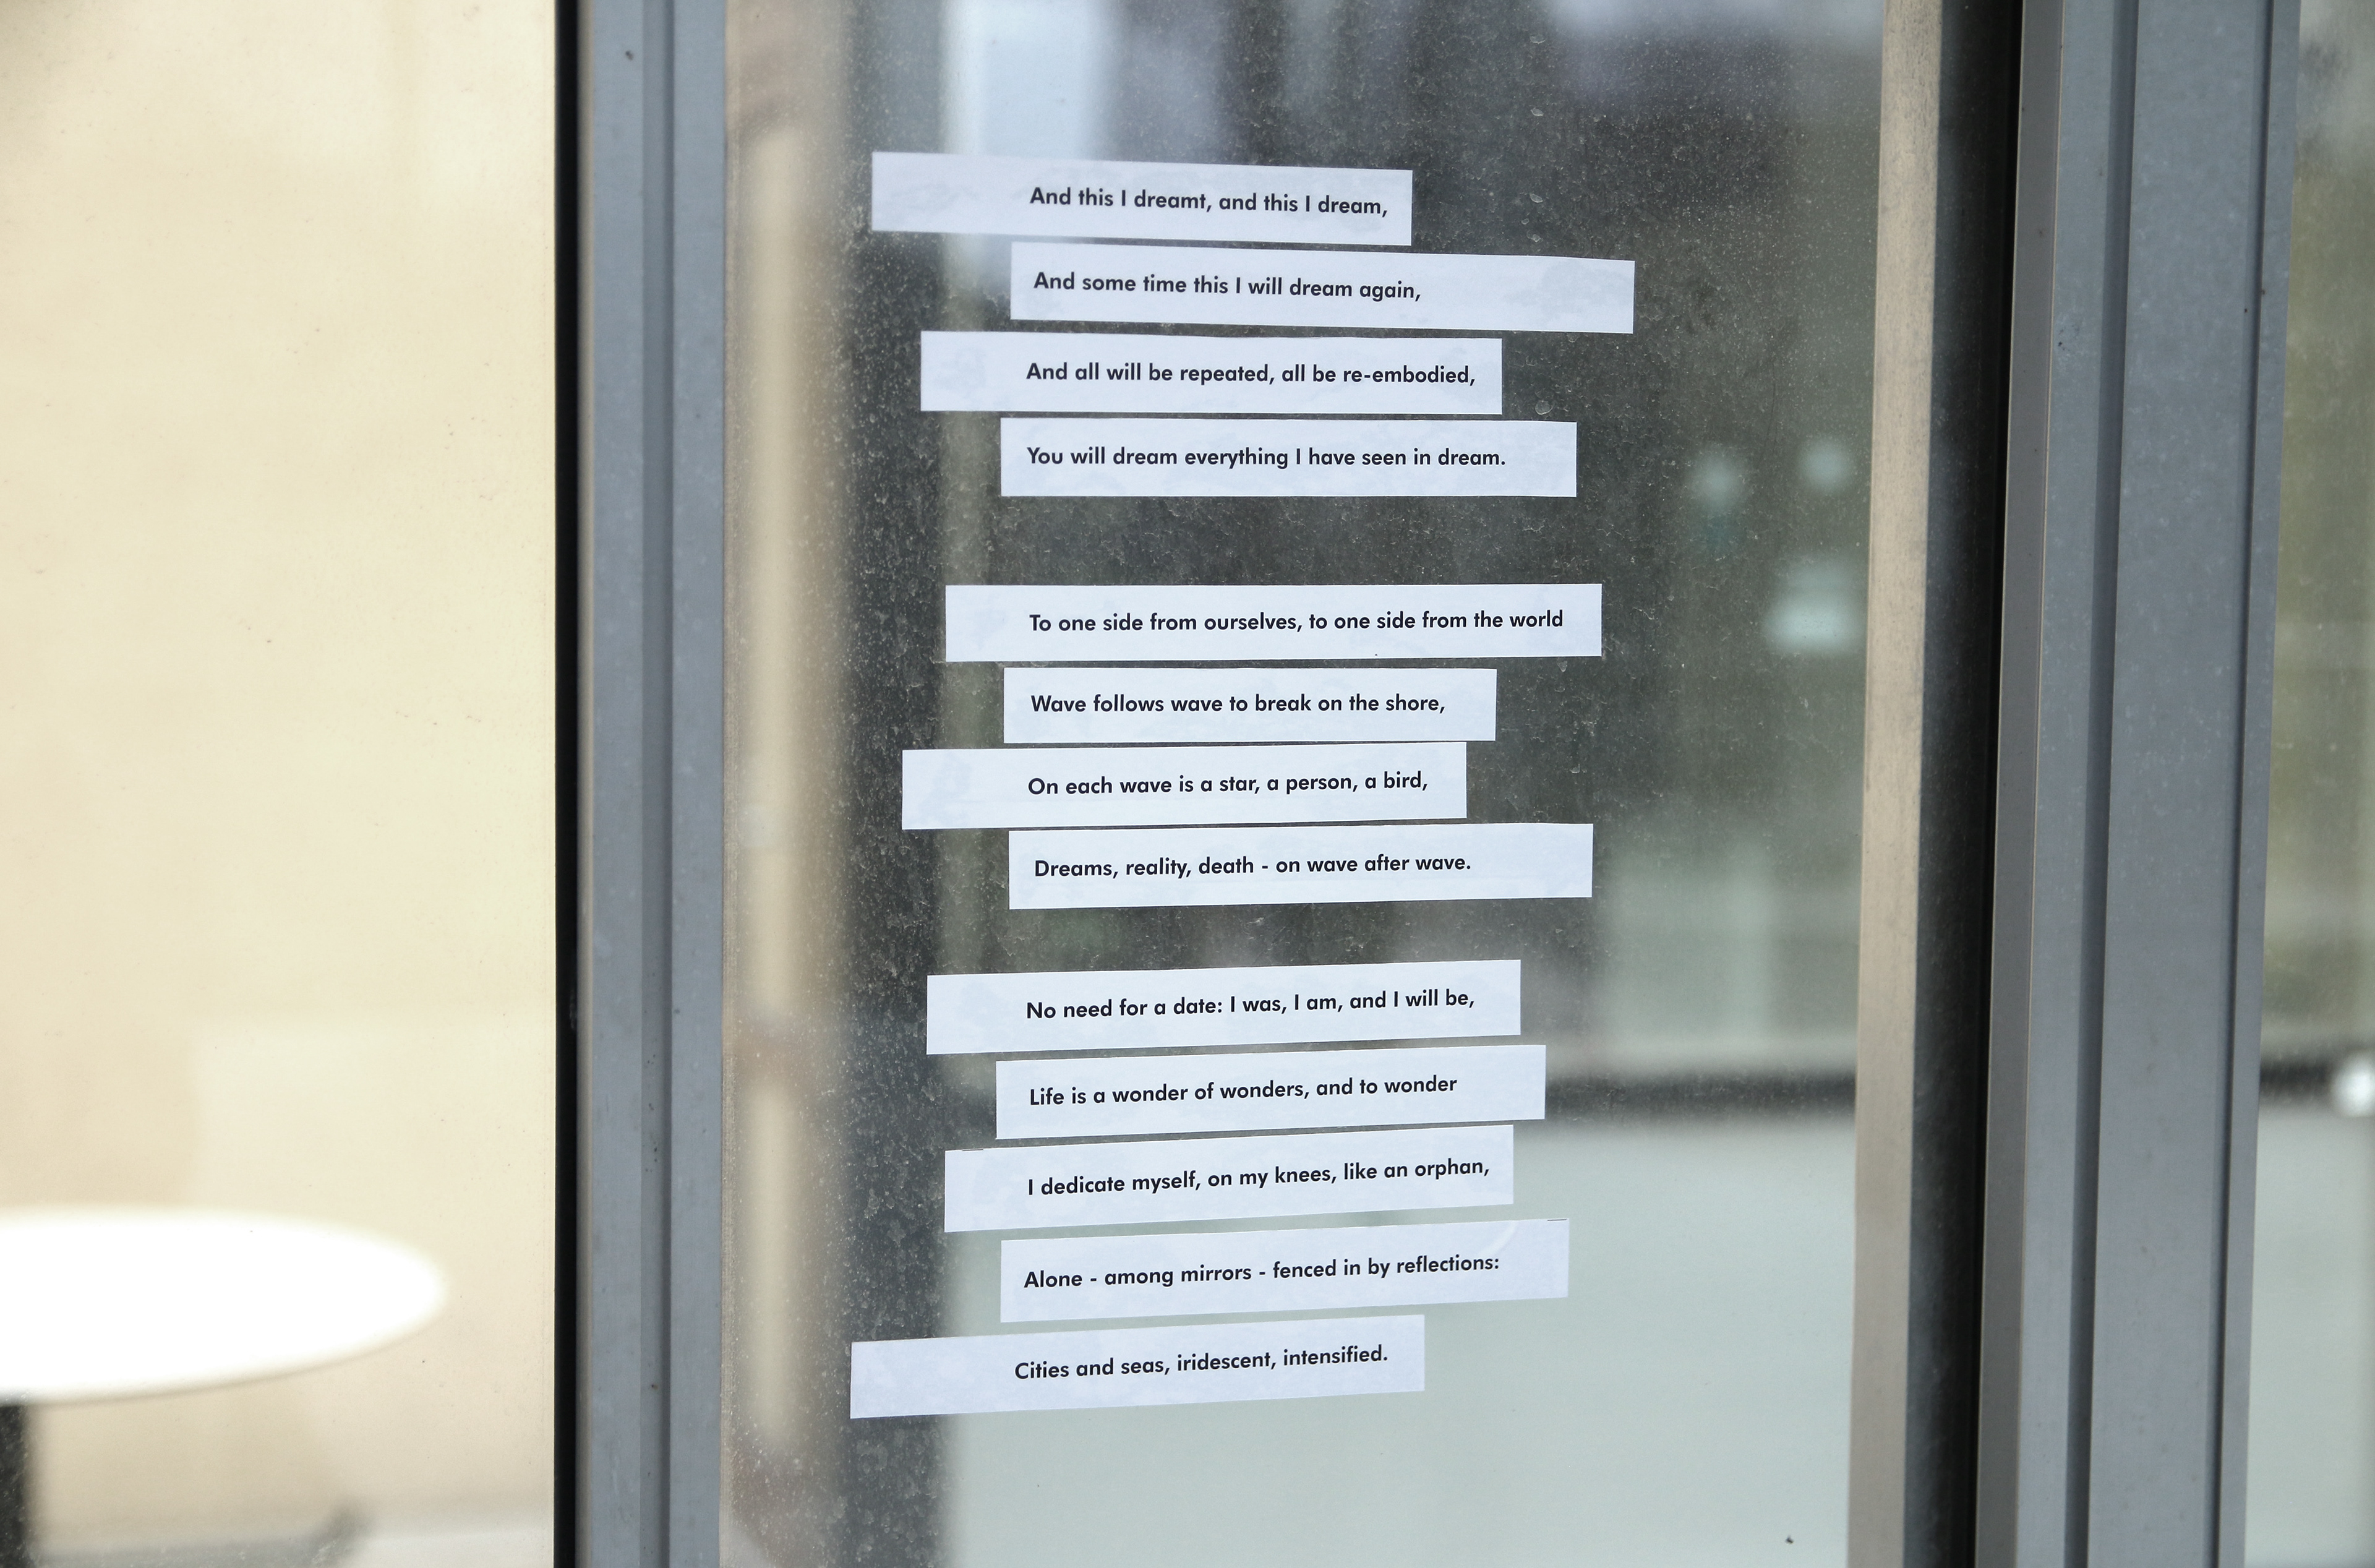 And this I dreamt, and this I dream,
And some time this I will dream again,
And all will be repeated, all be re-embodied,
You will dream everything I have seen in dream.
To one side from ourselves, to one side from the world
Wave follows wave to break on the shore,
On each wave is a star, a person, a bird,
Dreams, reality, death - on wave after wave.
No need for a date: I was, I am, and I will be,
Life is a wonder of wonders, and to wonder
I dedicate myself, on my knees, like an orphan,
Alone - among mirrors - fenced in by reflections:
Cities and seas, iridescent, intensified.